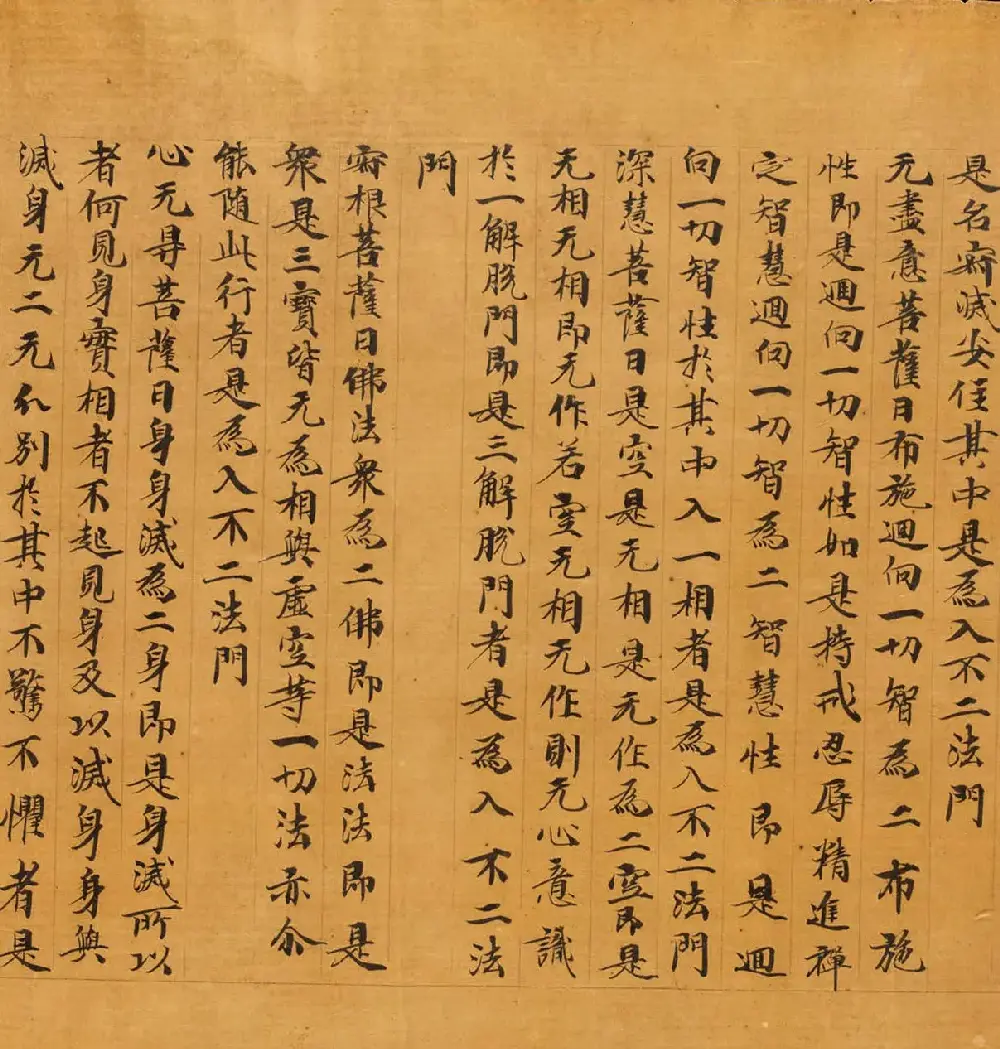 是名寂滅安住其中是為入不二法門
无盡意菩薩曰布施迴向一切智為二布施
性即是迴向一切智性如是持戒忍辱精進禪
定智慧迴向一切智為二智慧性即是迴
向一切智性於其中入一相者是為入不二法門
深慧菩薩曰是空是无相是无作為二空即是
无相无相即无作若空无相无作則无心意識
於一解脫門即是三解脫門者是為入不二法
門
寂根菩薩曰佛法衆為二佛即是法法即是
衆是三寶皆无為相與虛空等一切法亦尒
能随此行者是為入不二法門
心无㝵菩薩曰身身滅為二身即是身滅所以
者何見身實相者不起見身及以滅身身與
滅身无二无分別於其中不驚不懼者是